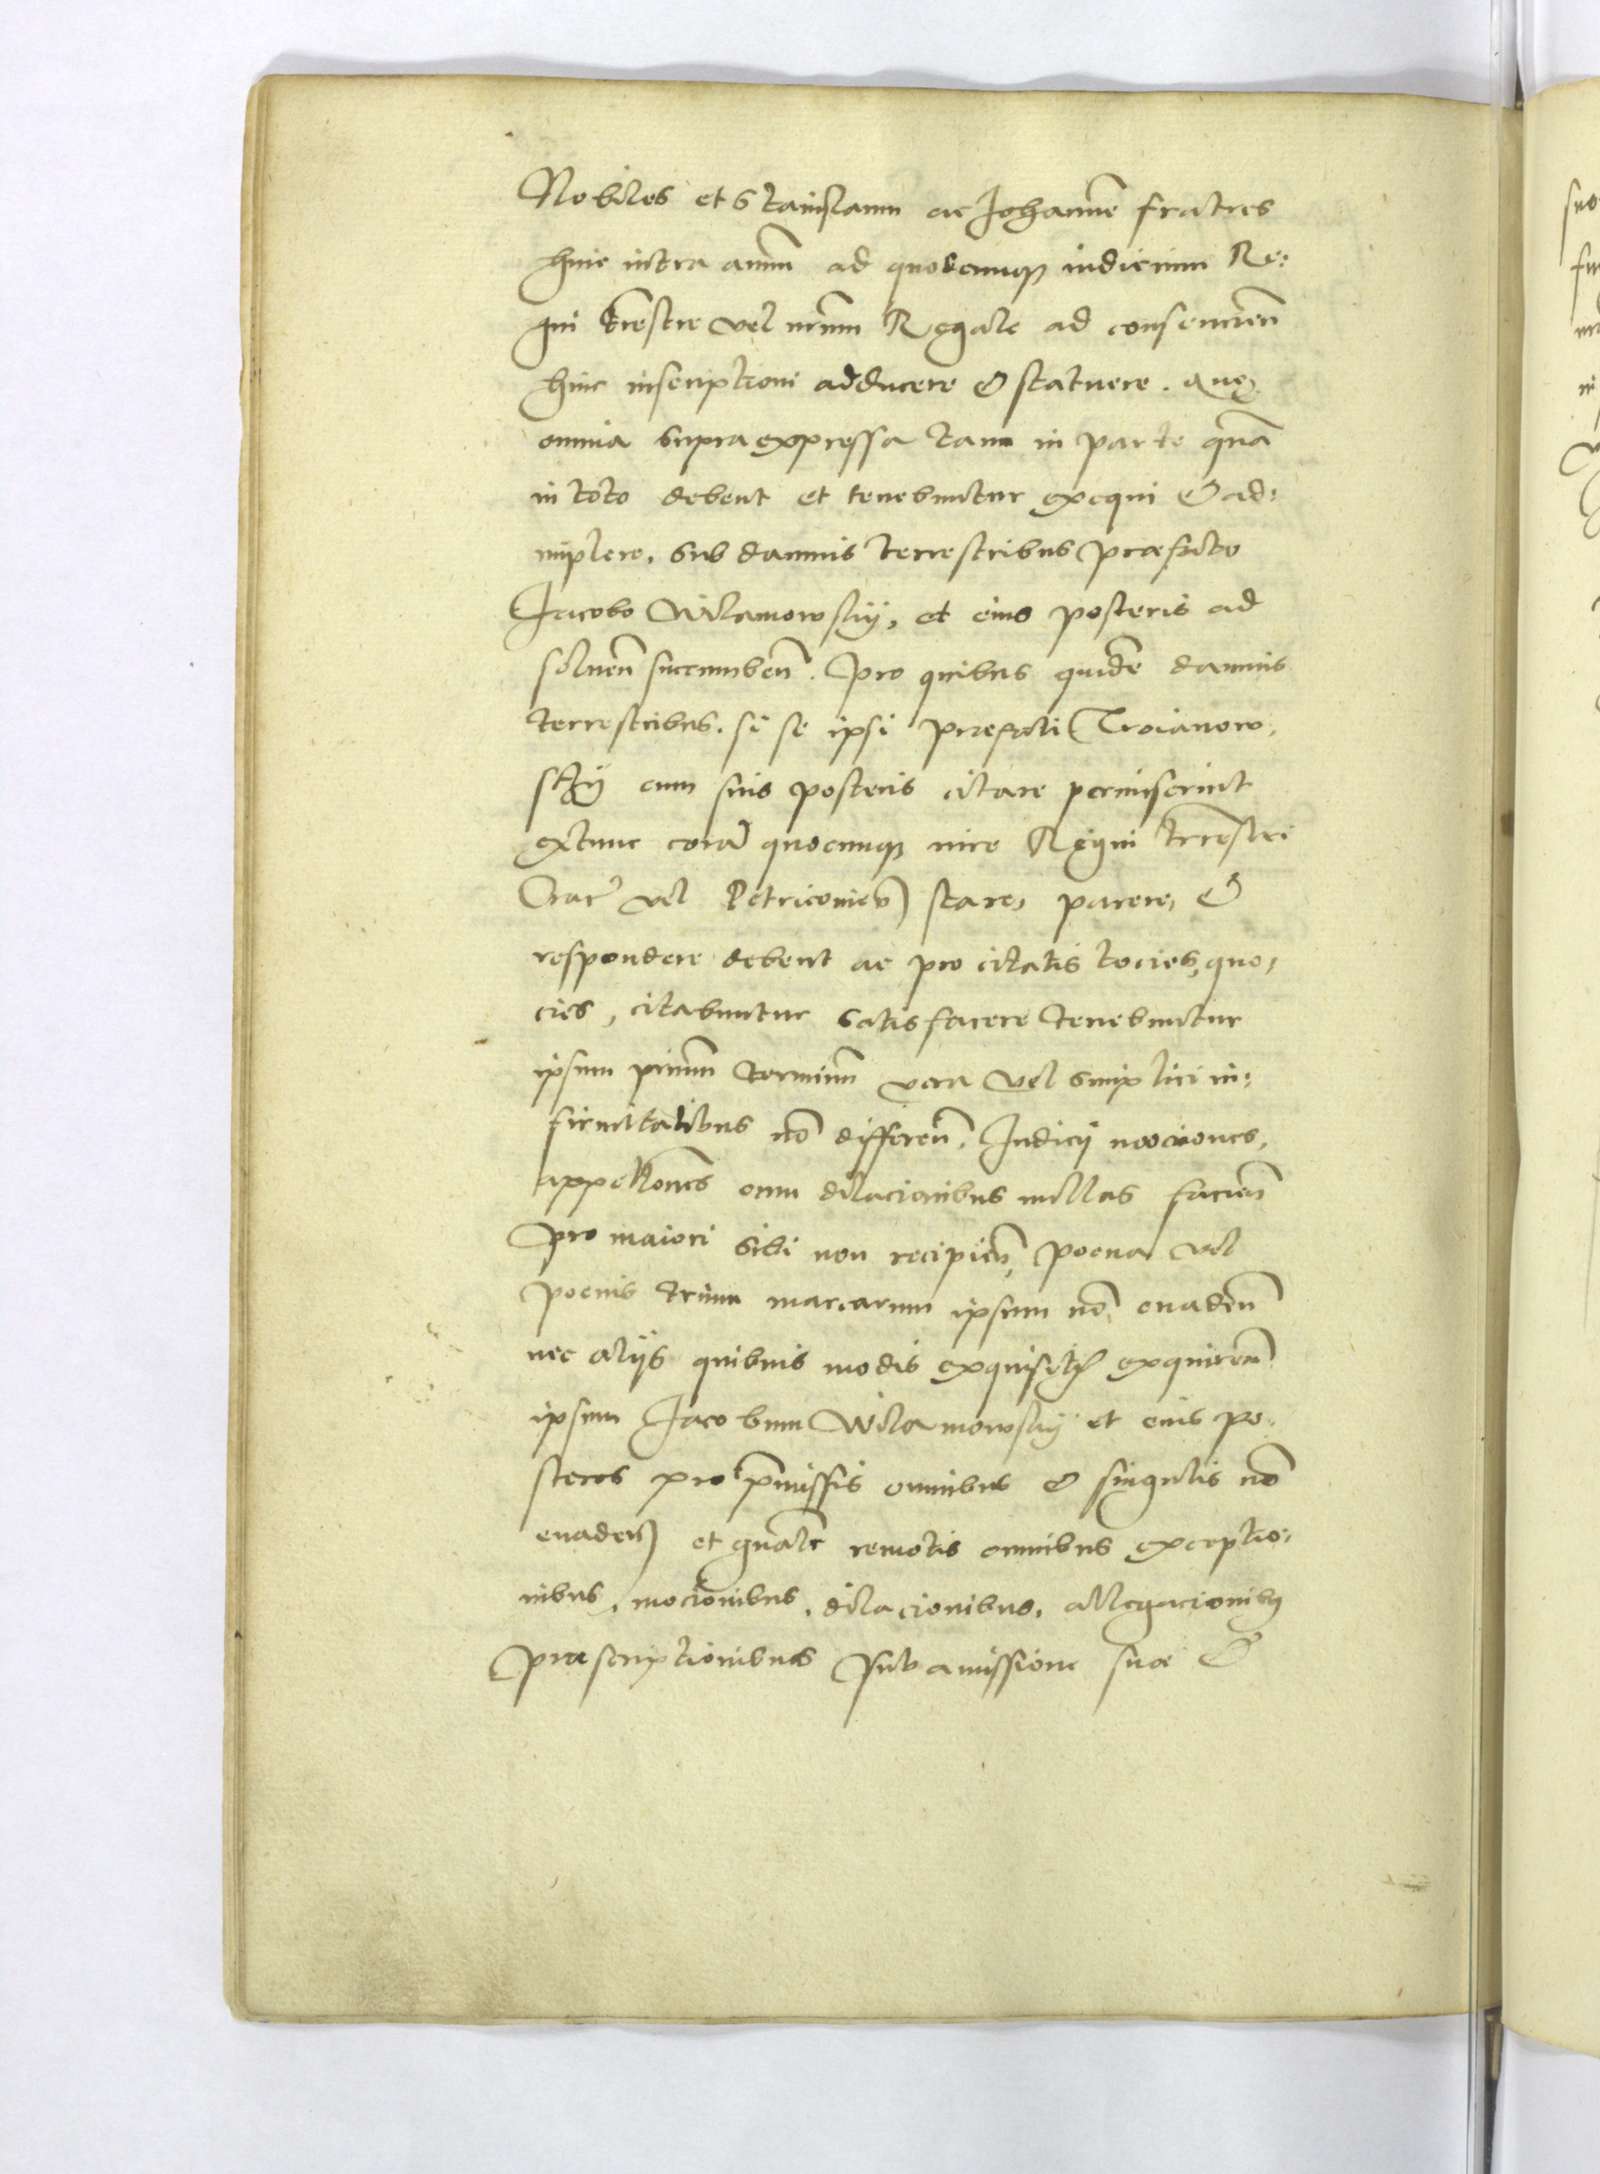 Nobiles et Stanislaum ac Johannē fratres
hinc intra annū ad quodcumq; iudicium Re:
gni trēstre vel nrūm Regale ad consencien̄
huic inscriptioni adducere & statuere. Quę
omnia supraexpressa tam in parte quā
in toto debent et tenebuntur exequi & ad:
implere. sub damnis terrestribus præfato
Jacobo Wilamowskij, et eius posteris ad
soluen̄ succumben̄. Pro quibus quidē damnis
terrestribus. si se ipsi præfati Troianow,
skij cum suis posteris citare permiserint
extunc corā quocumq; iure Regni trrēstri
Crac̄ vel Petricouien̄ stare, parere, &
respondere debent ac pro citatis tocies, quo,
cies, citabuntur satisfacere tenebuntur
ipsum primū terminū vera vel simplici in:
firmitatibus nō differen̄. Judicij mociones,
appellōnes cum dilacionibus nullas facien̄
pro maiori sibi non recipien̄, poena vel
poenis trium marcarum ipsum nō euaden̄
nec alijs quibuis modis exquisitis exquiren̄
ipsum Jacobum Wilamowskij et eius po,
steros pro p̄missis omnibus & singulis nō
euaden̄ et gnālr̄ remotis omnibus exceptio:
nibus, mocionibus, dilacionibus, allegacionibꝫ
præscriptionibus sub amissione suæ &